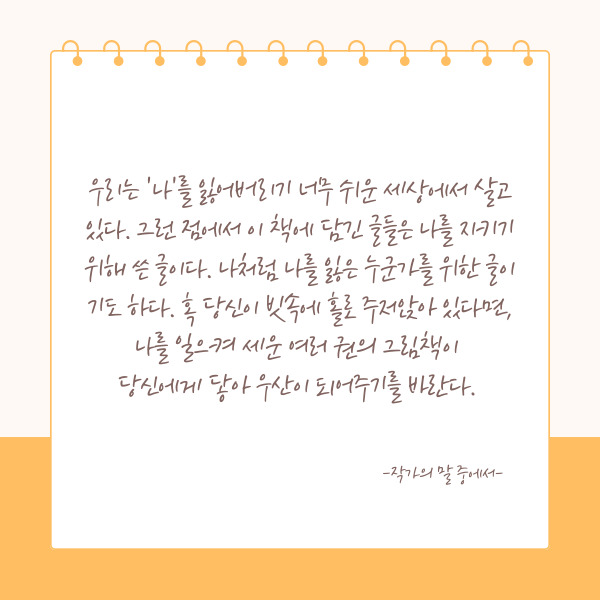 우리는 '나'를 잃어버리기 너무 쉬운 세상에서 살고
있다. 그런 점에서 이 책에 담긴 글들은 나를 지키기
위해 쓴 글이다. 나처럼 나를 잃은 누군가를 위한 글이
기도 하다. 혹 당신이 빗속에 홀로 주저앉아 있다면,
나를 일으켜 세운 여러 권의 그림책이
당신에게 닿아 우산이 되어주기를 바란다.
-작가의 말 중에서-